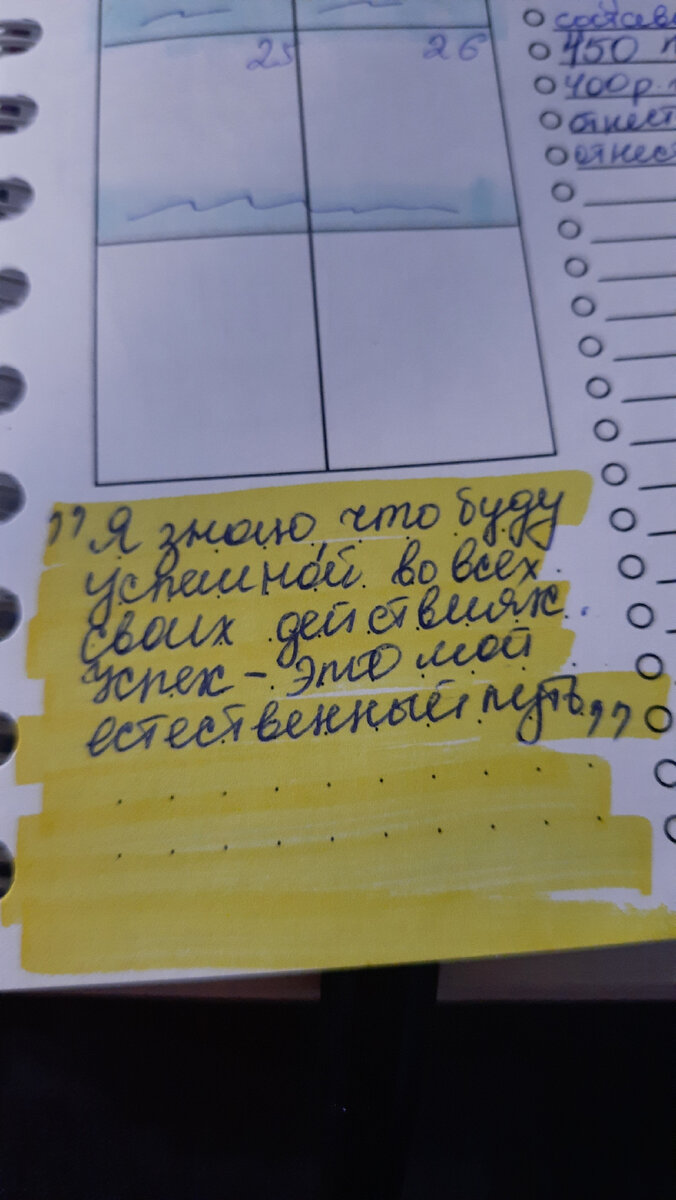 25 26
450
400р.
отнест
отнес
"Я знаю, что буду
успешной во всех
своих действиях.
Успех - это мой
естественный путь"